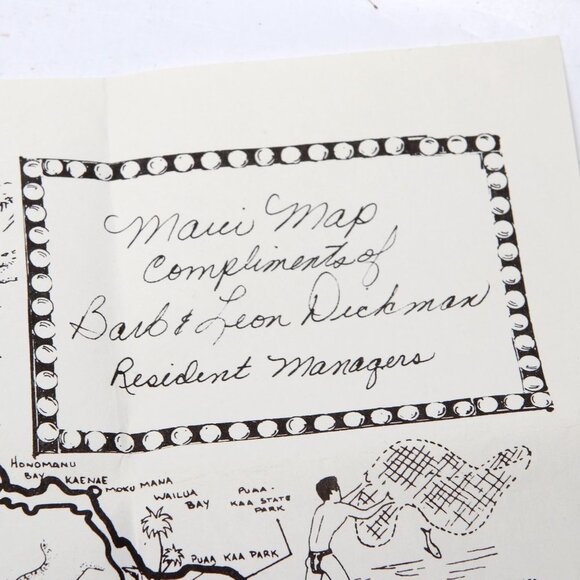 Maui Map
Compliments of
Barb & Leon Dickman
Resident Managers
HONOMANU
BAY
KAENAE
MOKU MANA
WAILUA
BAY
PUAA-
KAA STATE
PARK
PUAA KAA PARK